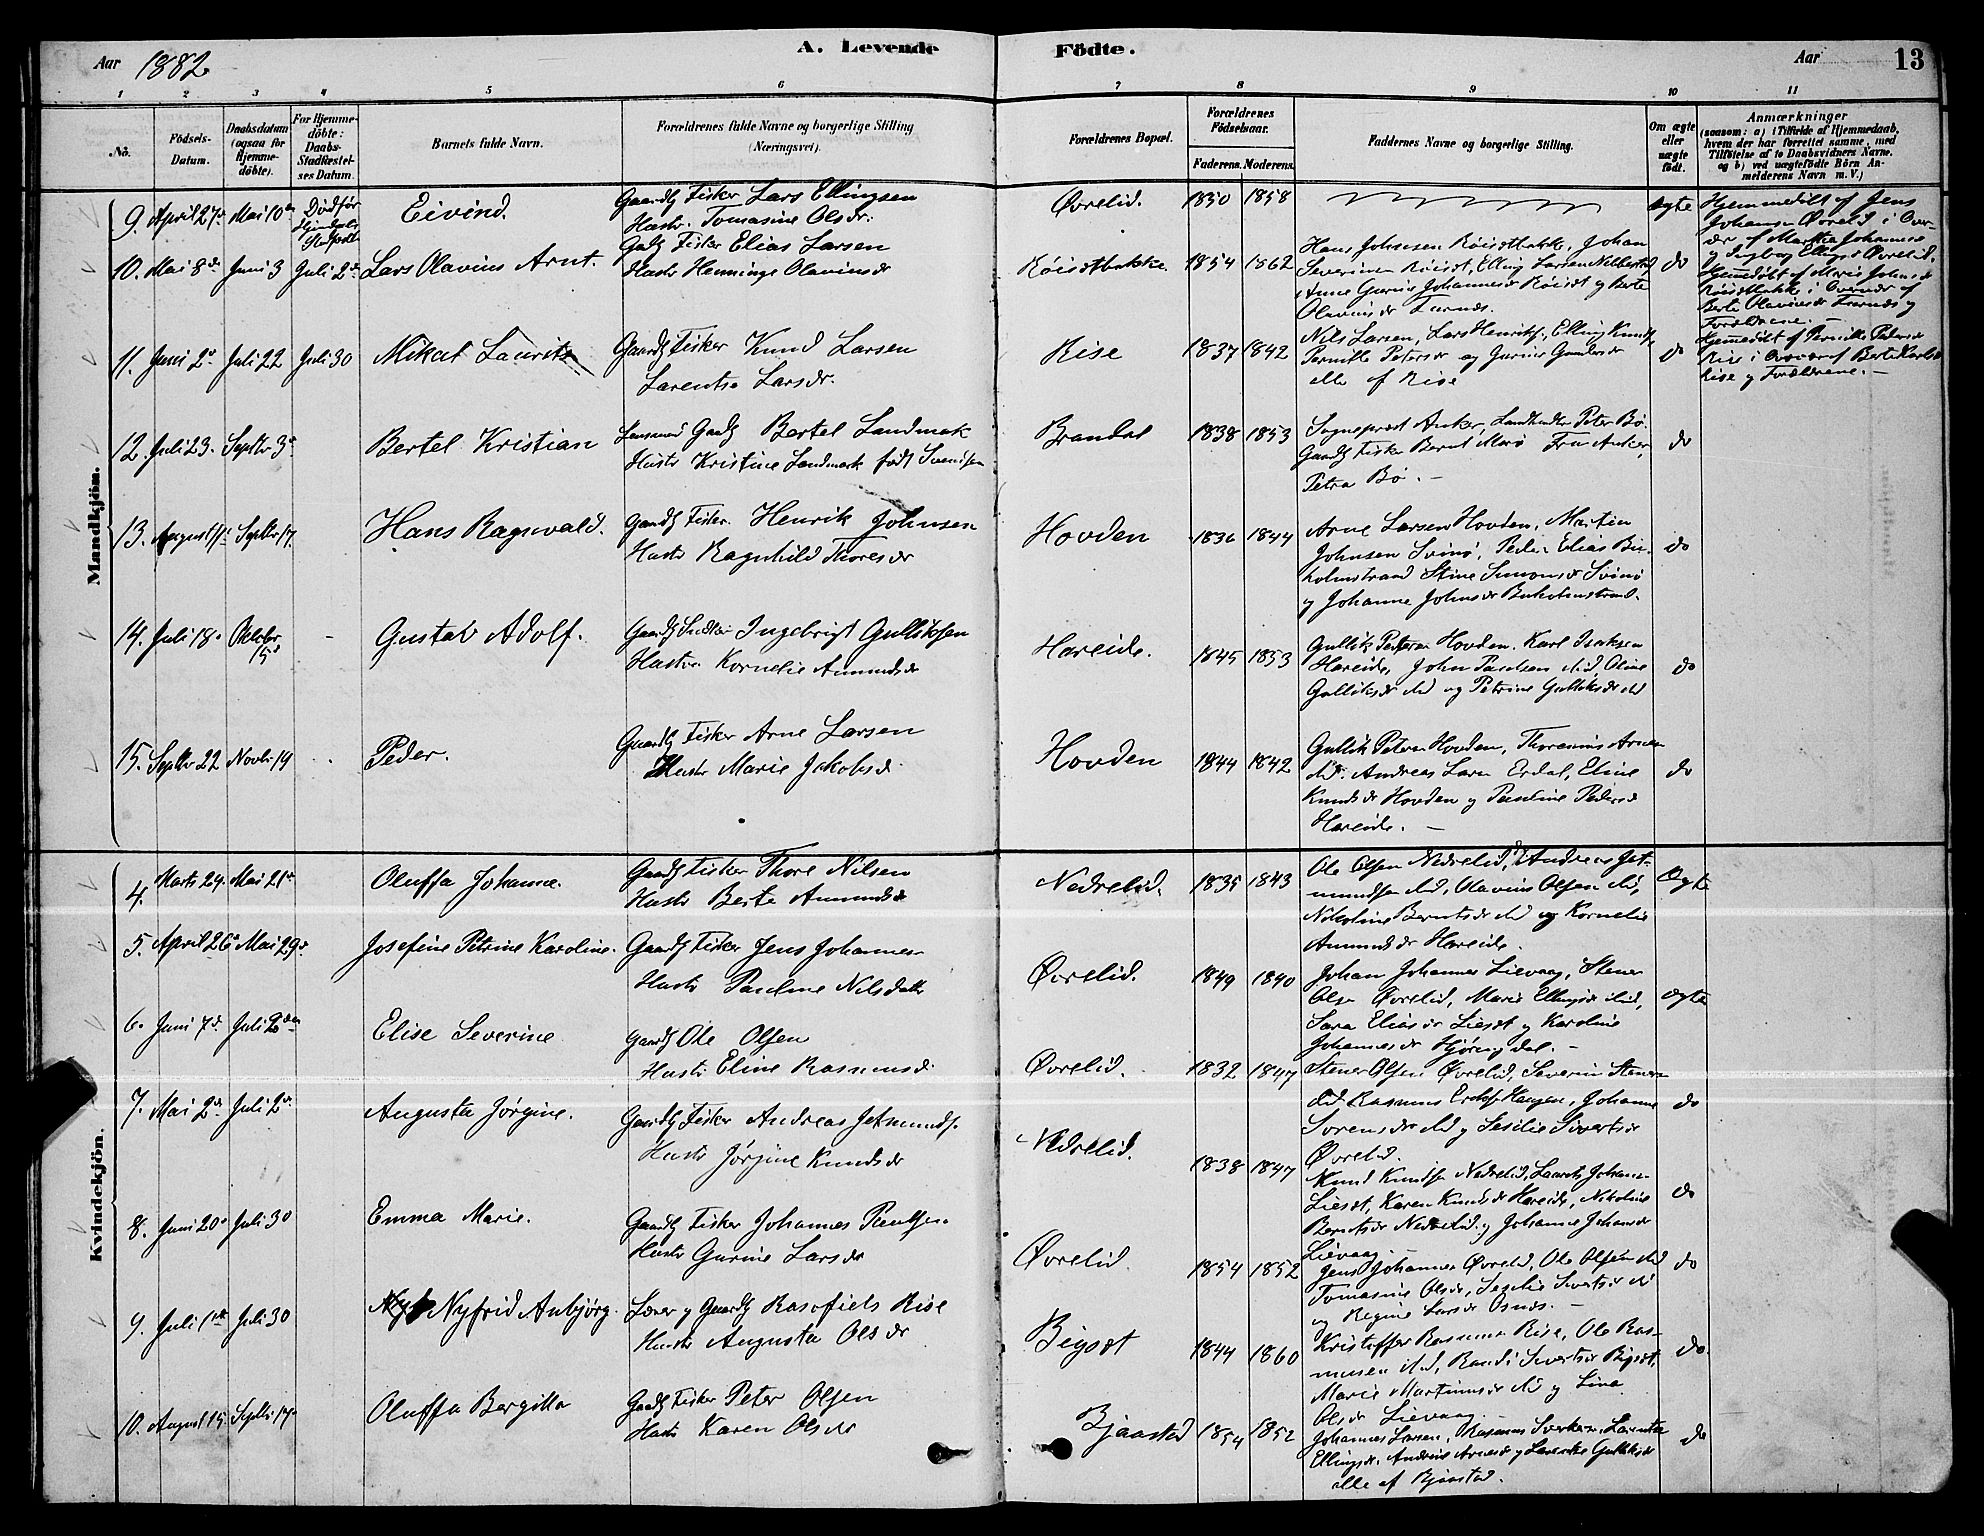 Aar 1882.
A. Levende Födte.
Aar 13
1 2 3 4 5 6 7 8 9 10 11
No.
Födsels-Datum.
Daabsdatum (ogsaa for Hjemmedöbte).
For Hjemmedöbte: Daabs-Stadfæstelses Datum.
Barnets fulde Navn.
Forældrenes fulde Navne og borgerlige Stilling (Næringsvei).
Forældrenes Bopæl.
Forældrenes Födselsaar.
Faderens. Moderens.
Faddernes Navne og borgerlige Stilling.
Om ægte eller uægte födt.
Anmærkninger
(saasom: a) i Tilfælde af Hjemmedaab, hvem der har forrettet samme, med Tilföielse af to Daabsvidners Navne. og b) ved uægtefödte Börn Anmelderens Navn m. V.)
Mandkjön.
9. April 27de Mai 10de Död før Eivind. Gaardb Fisker Lars Ellingsen
Hustr. Tomasine Olsdr.
Øvrelid. 1850 1858 ægte
Hjemmedöbt af Jens
Johansen Øvrelid i Over-
vær af Martha Johannes
og Ingbog Ellingsd Øvrelid.
10. Mai 8de Juni 3 Juli 2de Lars Olavius Arnt. Gaardb Fisker Elias Larsen
Hustr Henninge Olavinsdr
Röisetbakke. 1854 1862
Hans Johnsen Röisetbakke, Johan
Severinsen Röiset, Elling Larsen
Anne Gurine Johannesdr Röiset og Berte
Olavinsdr
do
Hjemmedöbt af Marie Johnsdr
Röisetbakke i Overvær af
Berte Olavinsdr og
Forældrene. —
11. Juni 2de Juli 22 Juli 30 Mikal Laurits Gaardb Fisker Knud Larsen
Larentse Larsdr.
Rise 1837 1842
Nils Larsen, Lars Henriks, Elling Knuds,
Pernille Petersdr og Gurine Gundersdr
alle af Rise
do
Hjemmedöbt af Pernille Pedersdr
Rise i Overvær af Berte Karlsdr
Rise og Forældrene. —
12. Juli 23. Septbr 3de Bertel Kristian Lensmand Gaardb Bertel Landmark
Hustr Kristine Landmark født Svendsen
Brandal 1838 1853
Sogneprest Anker, Landhandler Peter Bö.
Gaardb Fisker Bernt Marö Fru Anker,
Petra Bö. —
do
13. August 11. Septbr 17. Hans Ragnvald. Gaardb Fisker. Henrik Johnsen
Hustr Ragnhild Thoresdr
Hovden 1836 1844
Arne Larsen Hovden, Martin
Johnsen Svinø, Peder Elias Bir-
kholmstrand Stine Simonsdr Svinö
og Johanne Johnsdr Birkholmstrand.
do
14. Juli 18. Oktober 15de Gustav Adolf. Gaardb Ingebrigt Gulliksen
Hustr. Kornelie Amundsdr
Hareide. 1845 1853
Gullik Petersen Hovden. Karl Isaksen
Hareide, John Paulsen ibid, Oline
Gulliksdr ibid og Petrine Gulliksdr ibid
do
15. Septbr 22 Novbr 19 Peder. Gaardb Fisker Arne Larsen
Hustr Marie Jakobsdr.
Hovden 1844 1842
Gullik Peterse Hovden, Thoresens Arnsen
ibid. Andreas Larsen Erdal, Eline
Knudsdr Hovden og Pauline Pedersdr
Hareide. —
do
Kvindekjön.
4. Marts 24. Mai 21de Oluffa Johanne. Gaardb Fisker Thore Nilsen
Hustr Berte Amundsdr
Nedrelid. 1835 1843
Ole Olsen Nedrelid, Andreas Jet-
mundsen ibid, Olavius Olsen ibid,
Nikoline Berntsdr ibid og Kornelie
Amundsdr Hareide.
Ægte
5. April 26de Mai 29de Josefine Petrine Karoline. Gaardb Fisker Jens Johannes-
Hustr Pauline Nilsdatter
Øvrelid. 1849 1840
Johan Johannes Lievaag, Stener
Olsen Øvrelid, Marie Ellingsdr ibid,
Sara Eliasdr Lieset og Karoline
Johannesdr Hjöringdal. —
ægte
6. Juni 7de Juli 2den Elise Severine Gaardb Ole Olsen
Hustr Eline Rasmusdr.
Øvrelid. 1832 1847
Stener Olsen Øvrelid, Severin Stenersen
ibid Rasmus Haugen, Johanne
Sorensdr ibid og Sesilie Sivertsdr
Øvrelid.
do
7. Mai 2de Juli 2de Augusta Jörgine. Gaardb Fisker Andreas Jetmunds.
Hustr Jörgine Knudsdr
Nedrelid. 1838 1847
Knud Knudsen Nedrelid, Laurits Johans-
Lieset, Karen Knudsdr Hareide, Nikoline
Berntsdr Nedrelid og Johanne Johansdr
Lievaag. —
do
8. Juni 20de Juli 30 Emma Marie. Gaardb Fisker Johannes Paulsen.
Hustr Gurine Larsdr
Øvrelid. 1854 1852
Jens Johannes Øvrelid, Ole Olsen ibid
Tomasine Olsdr, Sesilie Sivertsdr ibid
og Regine Larsdr Osnes. —
do
9. Juli 1ste Juli 30 Nyfrid Anbjörg. Lærer og Gaardb Rasofiels Rise
Hustr Augusta Olsdr
Bigset 1844 1860
Kristoffer Rasmussen Rise, Ole Ras-
mussen ibid, Randi Sivertsdr Bigset,
Marie Martinusdr ibid og Lina
Olsdr Lievaag. —
do.
10. August 15. Septbr 17de Oluffa Bergitta Gaardb Fisker Peter Olsen
Hustr Karen Olsdr
Bjaastad 1854 1852
Johannes Larsen, Rasmus Larentse
Ellingsdr. Andrine Arnesdr og Larentse Gulliksdr
alle af Bjaastad.
do